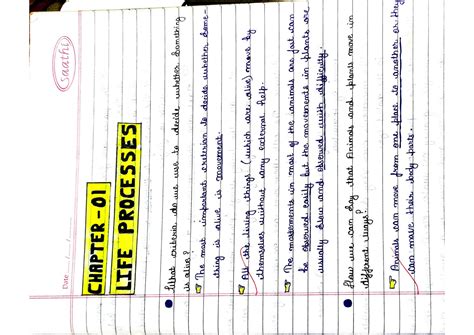 saathi
Date / /
CHAPTER-01
LIFE PROCESSES
What criteria do we use to decide whether something
is alive?
The most important criterion to decide whether some-
thing is alive is movement.
All the living things (which are alive) move by
themselves without any external help.
The movements in most of the animals are fast can
be observed easily but the movements in plants are
usually slow and observed with difficulty.
How we can say that Animals and plants move in
different ways?
Animals can move from one place to another or they
can move their body parts.